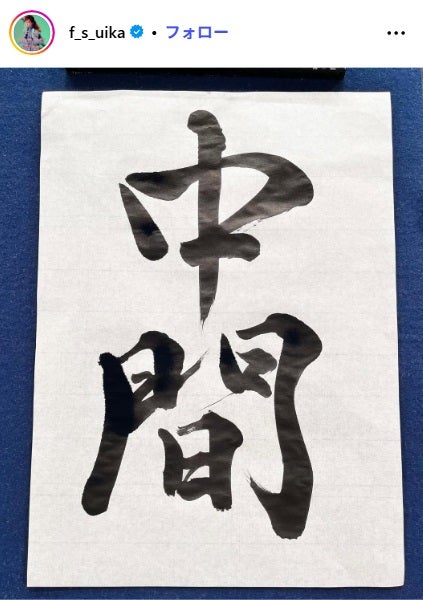 f_s_uika • フォロー
中
間